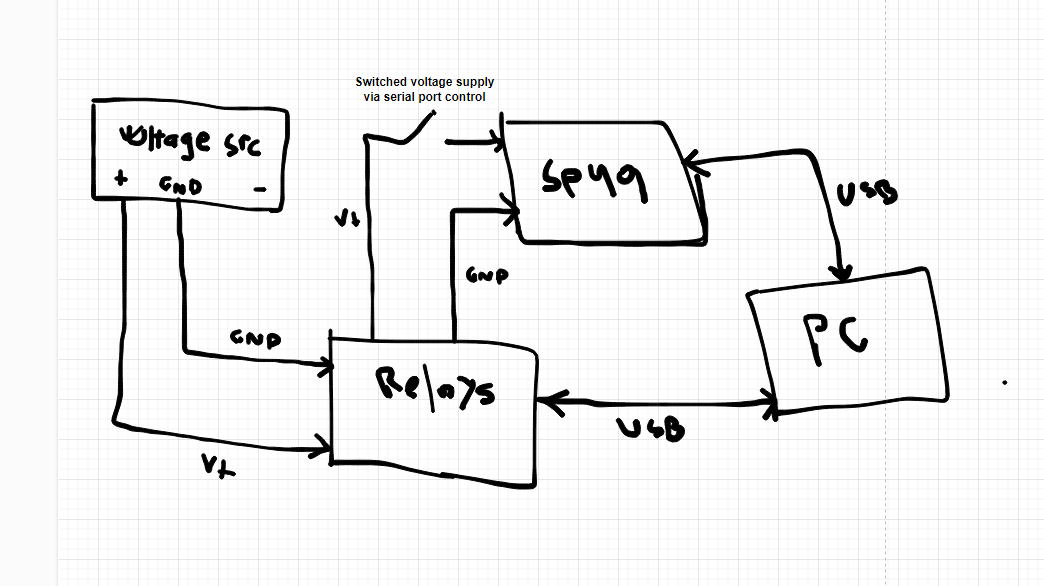 Switched voltage supply
via serial port control
Voltage src
+ GND -
V+
GND
GND
V+
Relays
USB
USB
PC